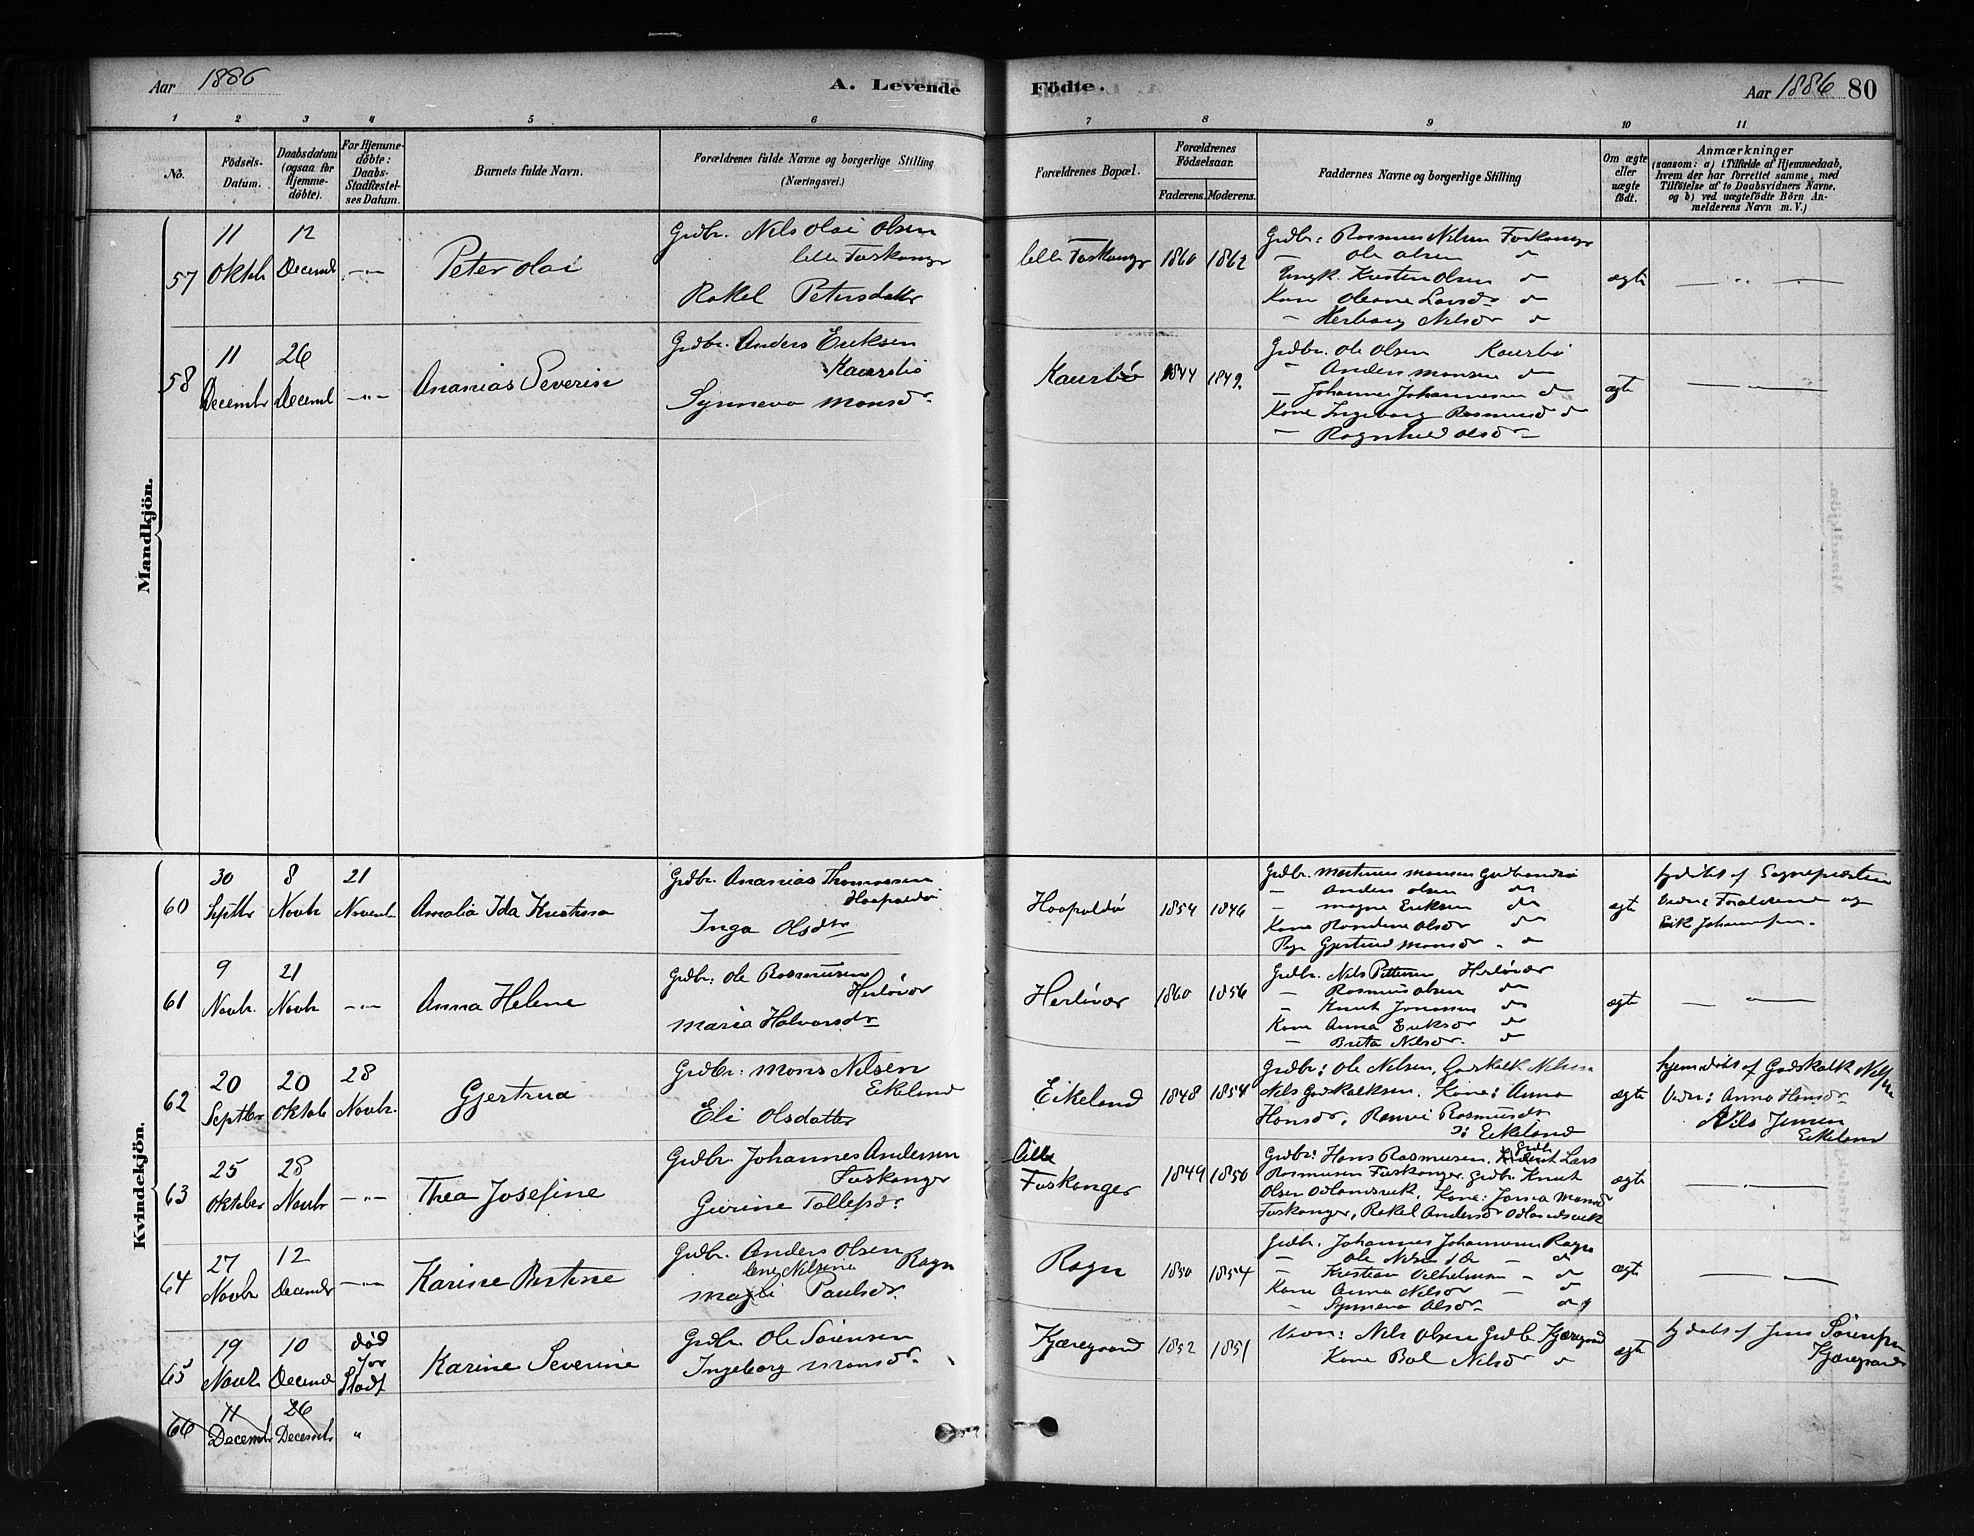 Aar 1886
A. Levende
Födte.
Aar 1886 80
1 2 3 4 5 6 7 8 9 10 11
No.
Födsels-
Datum.
Daabsdatum
(ogsaa for
Hjemme-
döbte).
For Hjemme-
döbte:
Daabs-
Stadfæstel-
ses Datum.
Barnets fulde Navn.
Forældrenes fulde Navne og borgerlige Stilling
(Næringsvei.)
Forældrenes Bopæl.
Forældrenes
Födselsaar.
Faderens. Moderens.
Faddernes Navne og borgerlige Stilling
Om ægte
eller
uægte
födt.
Anmærkninger
(saasom: a) i Tilfælde af Hjemmedaab,
hvem der har forrettet samme, med
Tilföielse af to Daabsvidners Navne,
og b) ved uægtefödte Börn An-
melderens Navn m. V.)
Mandkjön.
57
11
Oktbr
12
Decembr
Peter Olai
Grdbr. Nils Olai Olsen
lille Foskanger
Rakel Petersdatter
1860 1862
Grdbr: Rasmus Nilsen
Ole Olsen
Ungk. Kristen Olsen
Kone Oleane Larsd
Herborg Nilsdr
ægte
58
11
Decembr
26
Decembr
Ananias Severin
Grdbr. Anders Eriksen
Kaursbö
Synneva Monsdr.
Kaursbö
1844 1849.
Grdbr. Ole Olsen Kaursbö
Anders Monsen
Johannes Johannesen
Kone Ingeborg Rasmusd
Ragnhild Olsdr
ægte
Kvindekjön.
60
30
Septbr
8
Novbr
21
Novembr
Amalia Ida Kristina
Grdbr. Ananias Thomassen
Inga Olsdtr
1854 1846
Grdbr. Martinus Monsen
Anders Olsen
Magne Eriksen
Kone Randine Olsdr
Pge Gjertrud Monsdr
ægte
hjdöbt af Sognepresten
Vidne Forældrene og
Erik Johannesen.
61
9
Novbr.
21
Novbr
Anna Helene
Grdbr: Ole Rasmusen
Herlövær
Maria Halvorsdr
Herlövær
1860 1856
Grdbr. Nils Pettersen Herlövær
Rasmus Olsen
Knut Jonassen
Kone Anna Eriksdr
Brita Nilsdr.
ægte
62
20
Septbr
20
Oktob
28
Novbr.
Gjertrud
Grdbr. Mons Nilsen
Eikeland
Eli Olsdatter
Eikeland
1848 1854
Grdbr: Ole Nilsen, Godskalk Nilsen
Nils Godskalksen. Kone: Anna
Hansdr, Ranvei Rasmusdr
Eikeland
ægte
hjemdöbt af Godskalk Nilsen
Vidn: Anna Hansdr
Nils Jensen
Eikeland
63
25
Oktober
28
Novbr
Thea Josefine
Grdbr. Johannes Andersen
Foskanger
Gurine Tollefsdr.
Lille
Foskanger
1849 1850
Grdbr: Hans Rasmusen, Lars
Rasmusen Foskanger. grdbr Knut
Olsen Odlandsvik. Kone: Monsdr
Foskanger, Rakel Andersdr Odlandsvik
ægte
64
27
Novbr
12
Decembr
Karine Bertine
Grdbr. Anders Olsen
Lene Nilsine Rogn
Paulsdr.
Rogn
1850 1854
Grdbr. Johannes Johannesen Rogn
Ole Nilsen
Kristian Vilhelmsen
Kone Anna Nilsdr
Synneva Olsdr
ægte
65
19
Novbr
10
Decemb
död
för
Stadf
Karine Severine
Grdbr. Ole Sörensen
Ingeborg Monsdr.
Kjæregaard
1852 1851
Vidn: Nils Olsen Grdbr. Kjæregaard
Kone Nilsdr
ægte
hjdöbt af Jens Sörensen
Kjæregaard
66
11
Decembr
26
Decembr